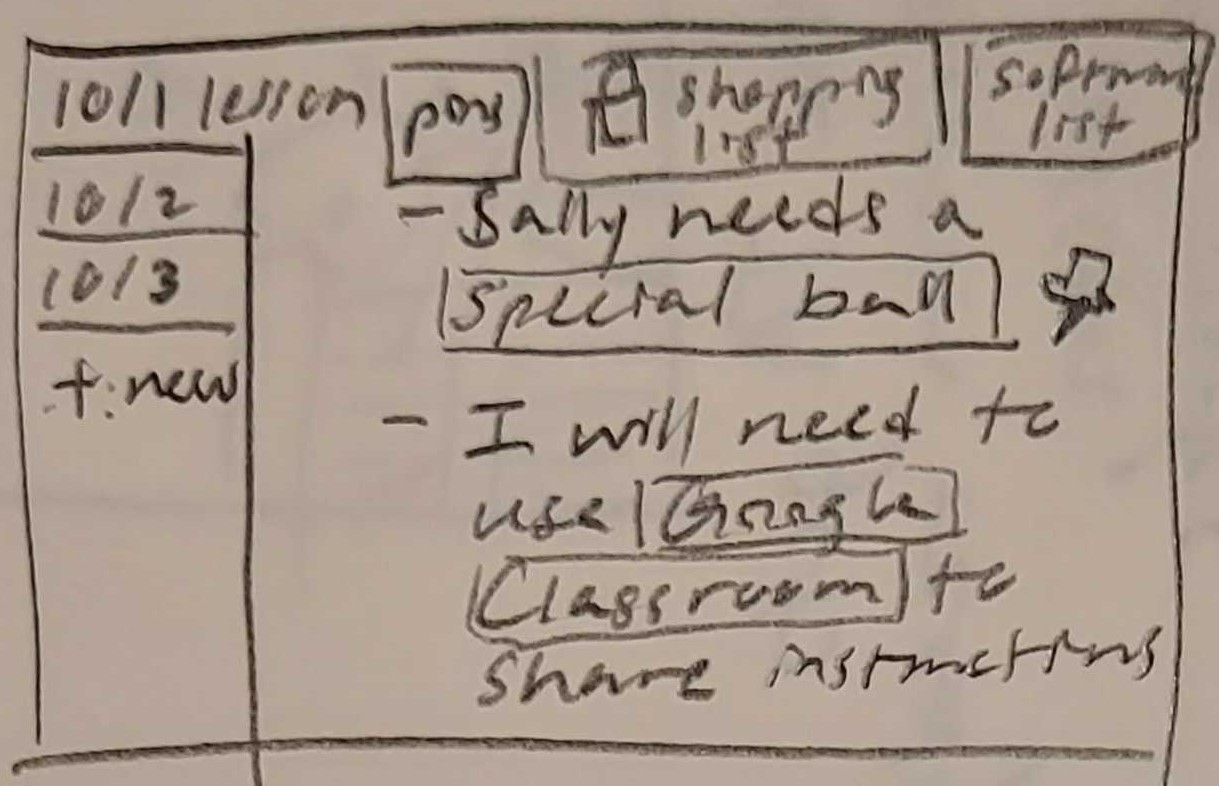 10/1 lesson
shopping list
software list
10/2
10/3
+ new
- Sally needs a
special ball
- I will need to
use Google
Classroom to
share instructions